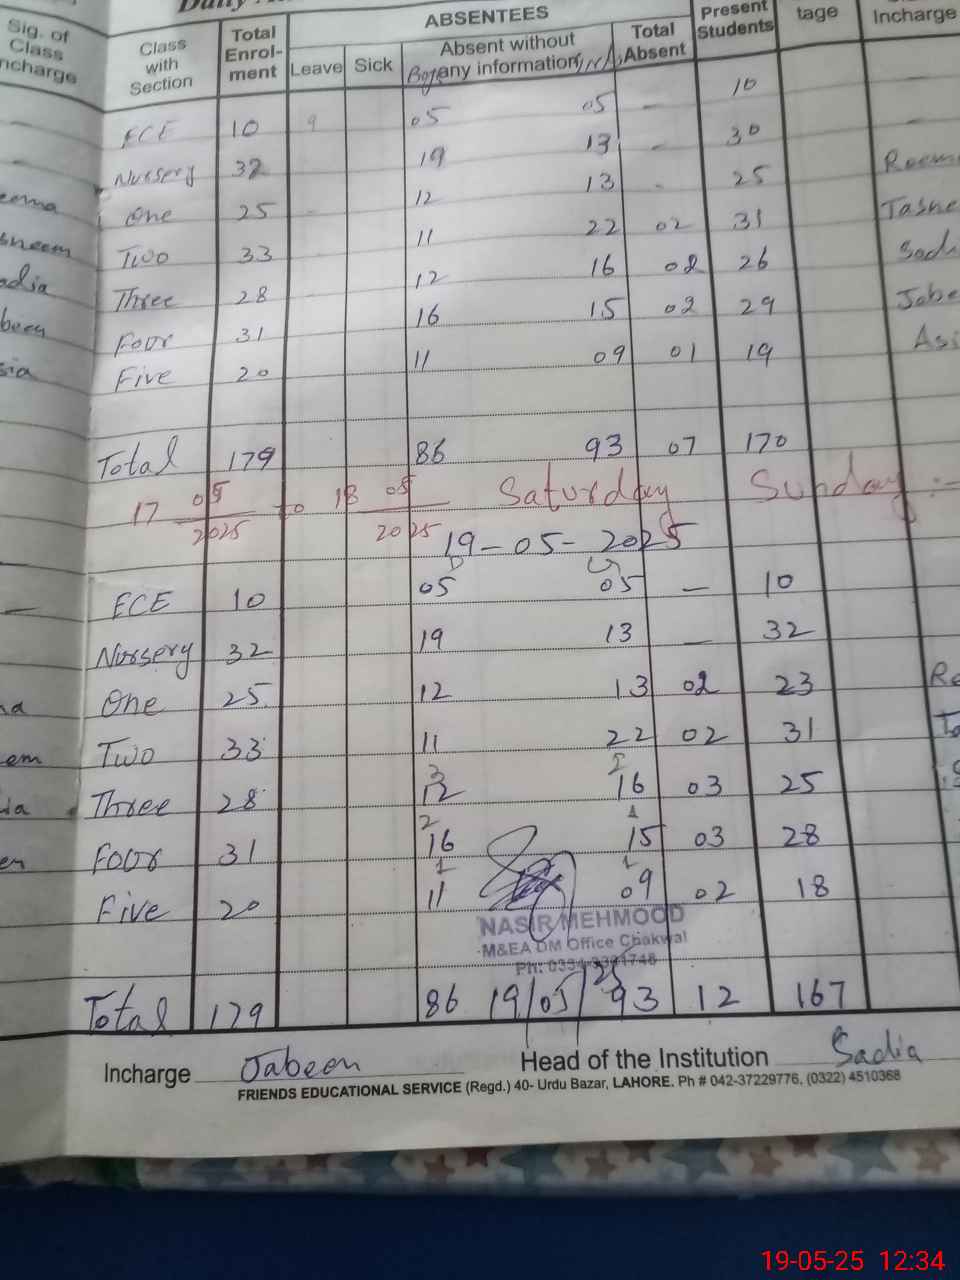 Sig. of
Class
Incharge
Class
with
Section
Total
Enrol-
ment
ABSENTEES
Leave
Sick
Absent without
any information
Boys
Total
Absent
Present
Students
tage
Incharge
ECE 10 9 05 05 - 10
Nursery 32 19 13 - 30
One 25 12 13 - 25
Two 33 11 22 02 31
Three 28 12 16 02 26
Four 31 16 15 02 29
Five 20 11 09 01 19
Total 179 86 93 07 170
17 05/2025 to 18 05/2025 Saturday Sunday :-
19-05-2025
ECE 10 05 05 - 10
Nursery 32 19 13 - 32
One 25 12 13 02 23
Two 33 11 22 02 31
3 2
Three 28 12 16 03 25
2 1
Four 31 16 15 03 28
1 1
Five 20 11 09 02 18
NASIR MEHMOOD
M&EA DM Office Chakwal
Total 179 86 19/05/25 93 12 167
Incharge Jabeen Head of the Institution Sadia
FRIENDS EDUCATIONAL SERVICE (Regd.) 40- Urdu Bazar, LAHORE. Ph # 042-37229776, (0322) 4510368
19-05-25 12:34